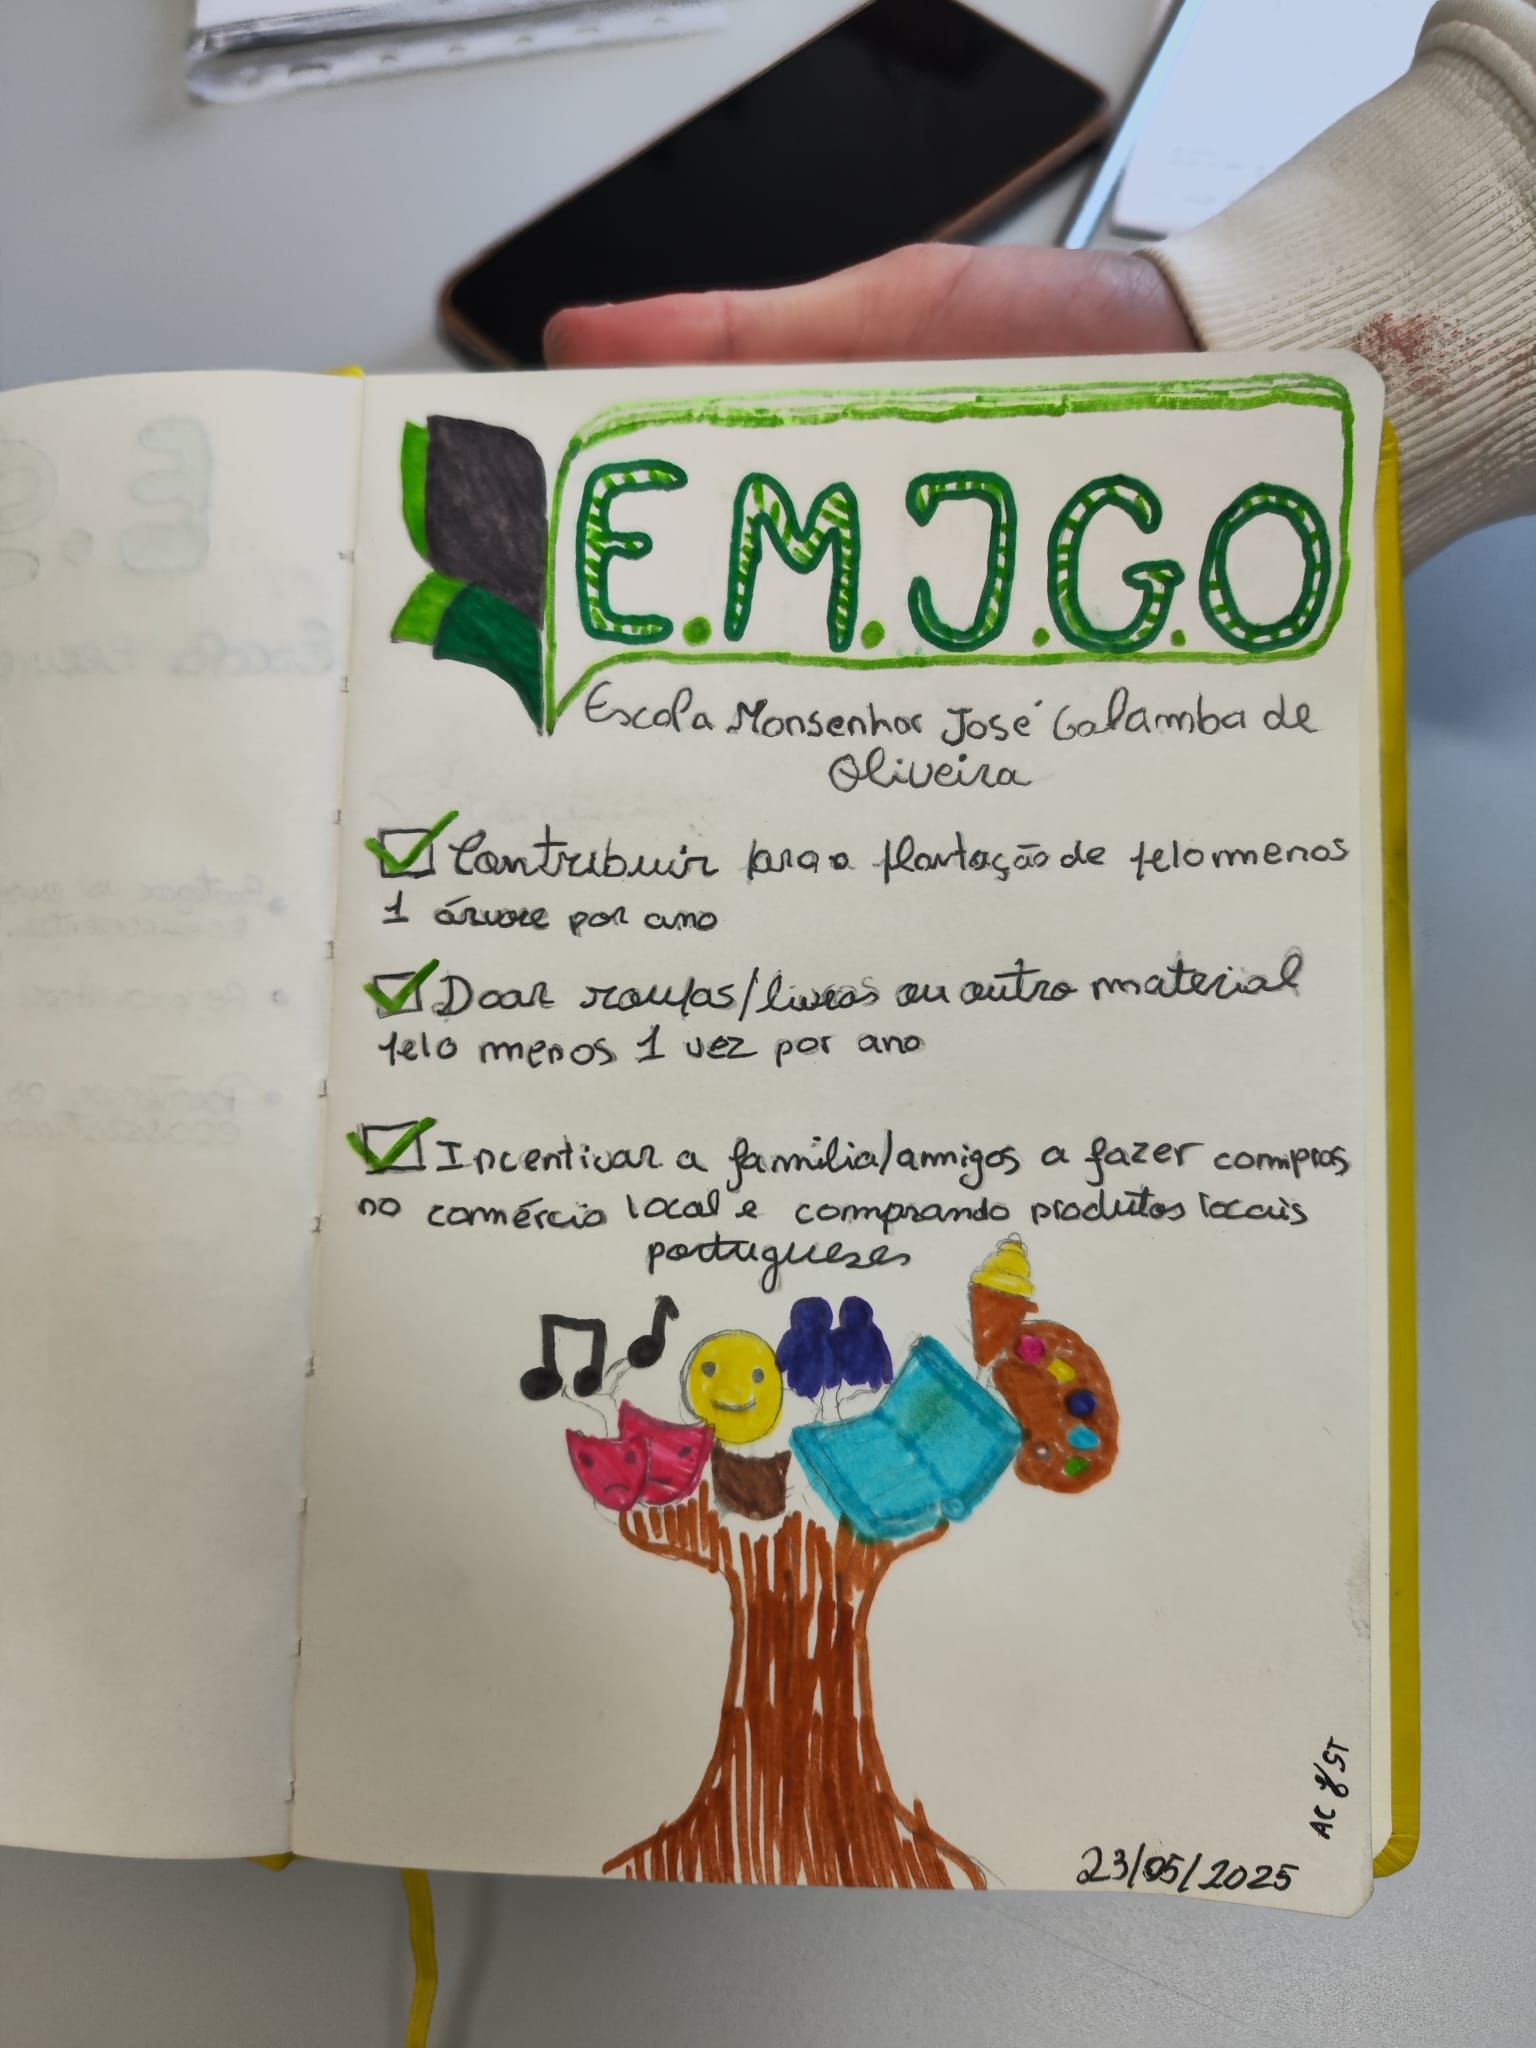 E.M.J.G.O
Escola Monsenhor José Galamba de
Oliveira
Contribuir para a plantação de pelo menos
1 árvore por ano
Doar roupas/livros ou outro material
pelo menos 1 vez por ano
Incentivar a família/amigos a fazer compras
no comércio local e comprando produtos locais
portugueses
AC & ST
23/05/2025